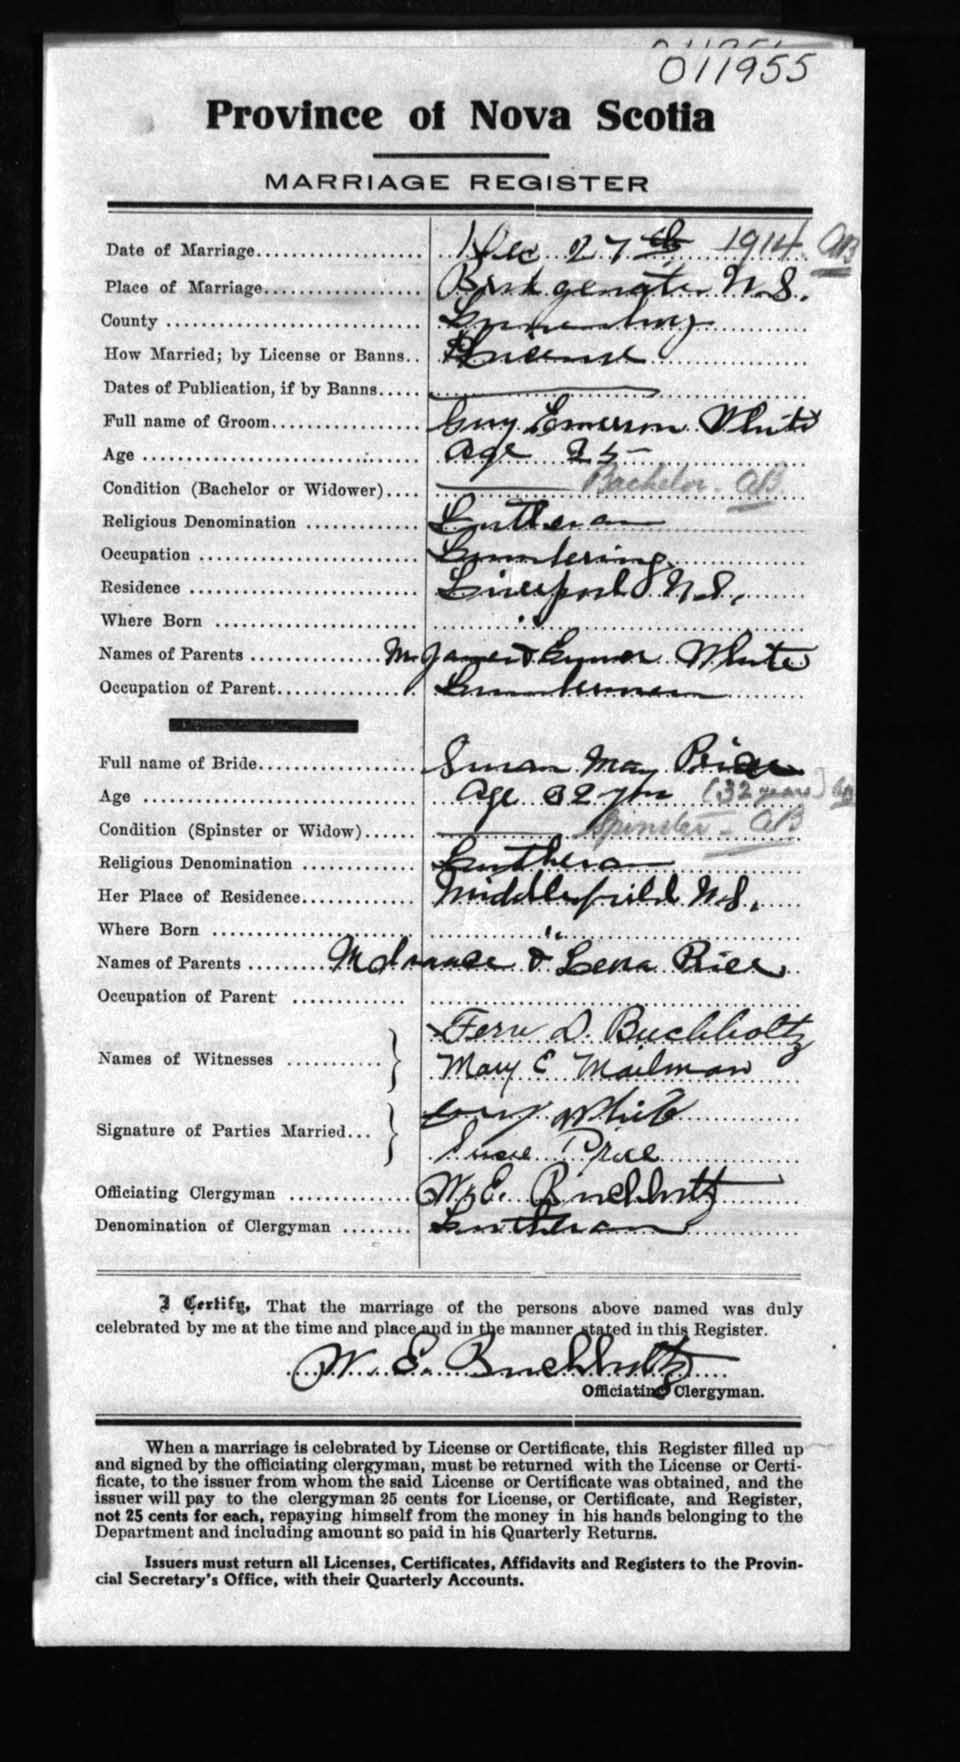 011955
Province of Nova Scotia
MARRIAGE REGISTER
Date of Marriage Dec 27th 1914 AB
Place of Marriage Bridgewater N.S.
County Lunenburg
How Married; by License or Banns License
Dates of Publication, if by Banns
Full name of Groom Guy Emerson White
Age Age 25
Condition (Bachelor or Widower) Bachelor - AB
Religious Denomination Lutheran
Occupation Lumbering
Residence Liverpool N.S.
Where Born "
Names of Parents James & White
Occupation of Parent Lumberman
Full name of Bride Susan May Price
Age Age 32 yrs (32 years) AB
Condition (Spinster or Widow) Spinster - AB
Religious Denomination Lutheran
Her Place of Residence Middlefield N.S.
Where Born "
Names of Parents & Lena Price
Occupation of Parent
Fern D. Buchholtz
Names of Witnesses
Mary E Mailman
Guy White
Signature of Parties Married
Susie Price
Officiating Clergyman W. E. Buchholtz
Denomination of Clergyman Lutheran
I Certify, That the marriage of the persons above named was duly
celebrated by me at the time and place and in the manner stated in this Register.
W. E. Buchholtz
Officiating Clergyman.
When a marriage is celebrated by License or Certificate, this Register filled up
and signed by the officiating clergyman, must be returned with the License or Certi-
ficate, to the issuer from whom the said License or Certificate was obtained, and the
issuer will pay to the clergyman 25 cents for License, or Certificate, and Register,
not 25 cents for each, repaying himself from the money in his hands belonging to the
Department and including amount so paid in his Quarterly Returns.
Issuers must return all Licenses, Certificates, Affidavits and Registers to the Provin-
cial Secretary's Office, with their Quarterly Accounts.